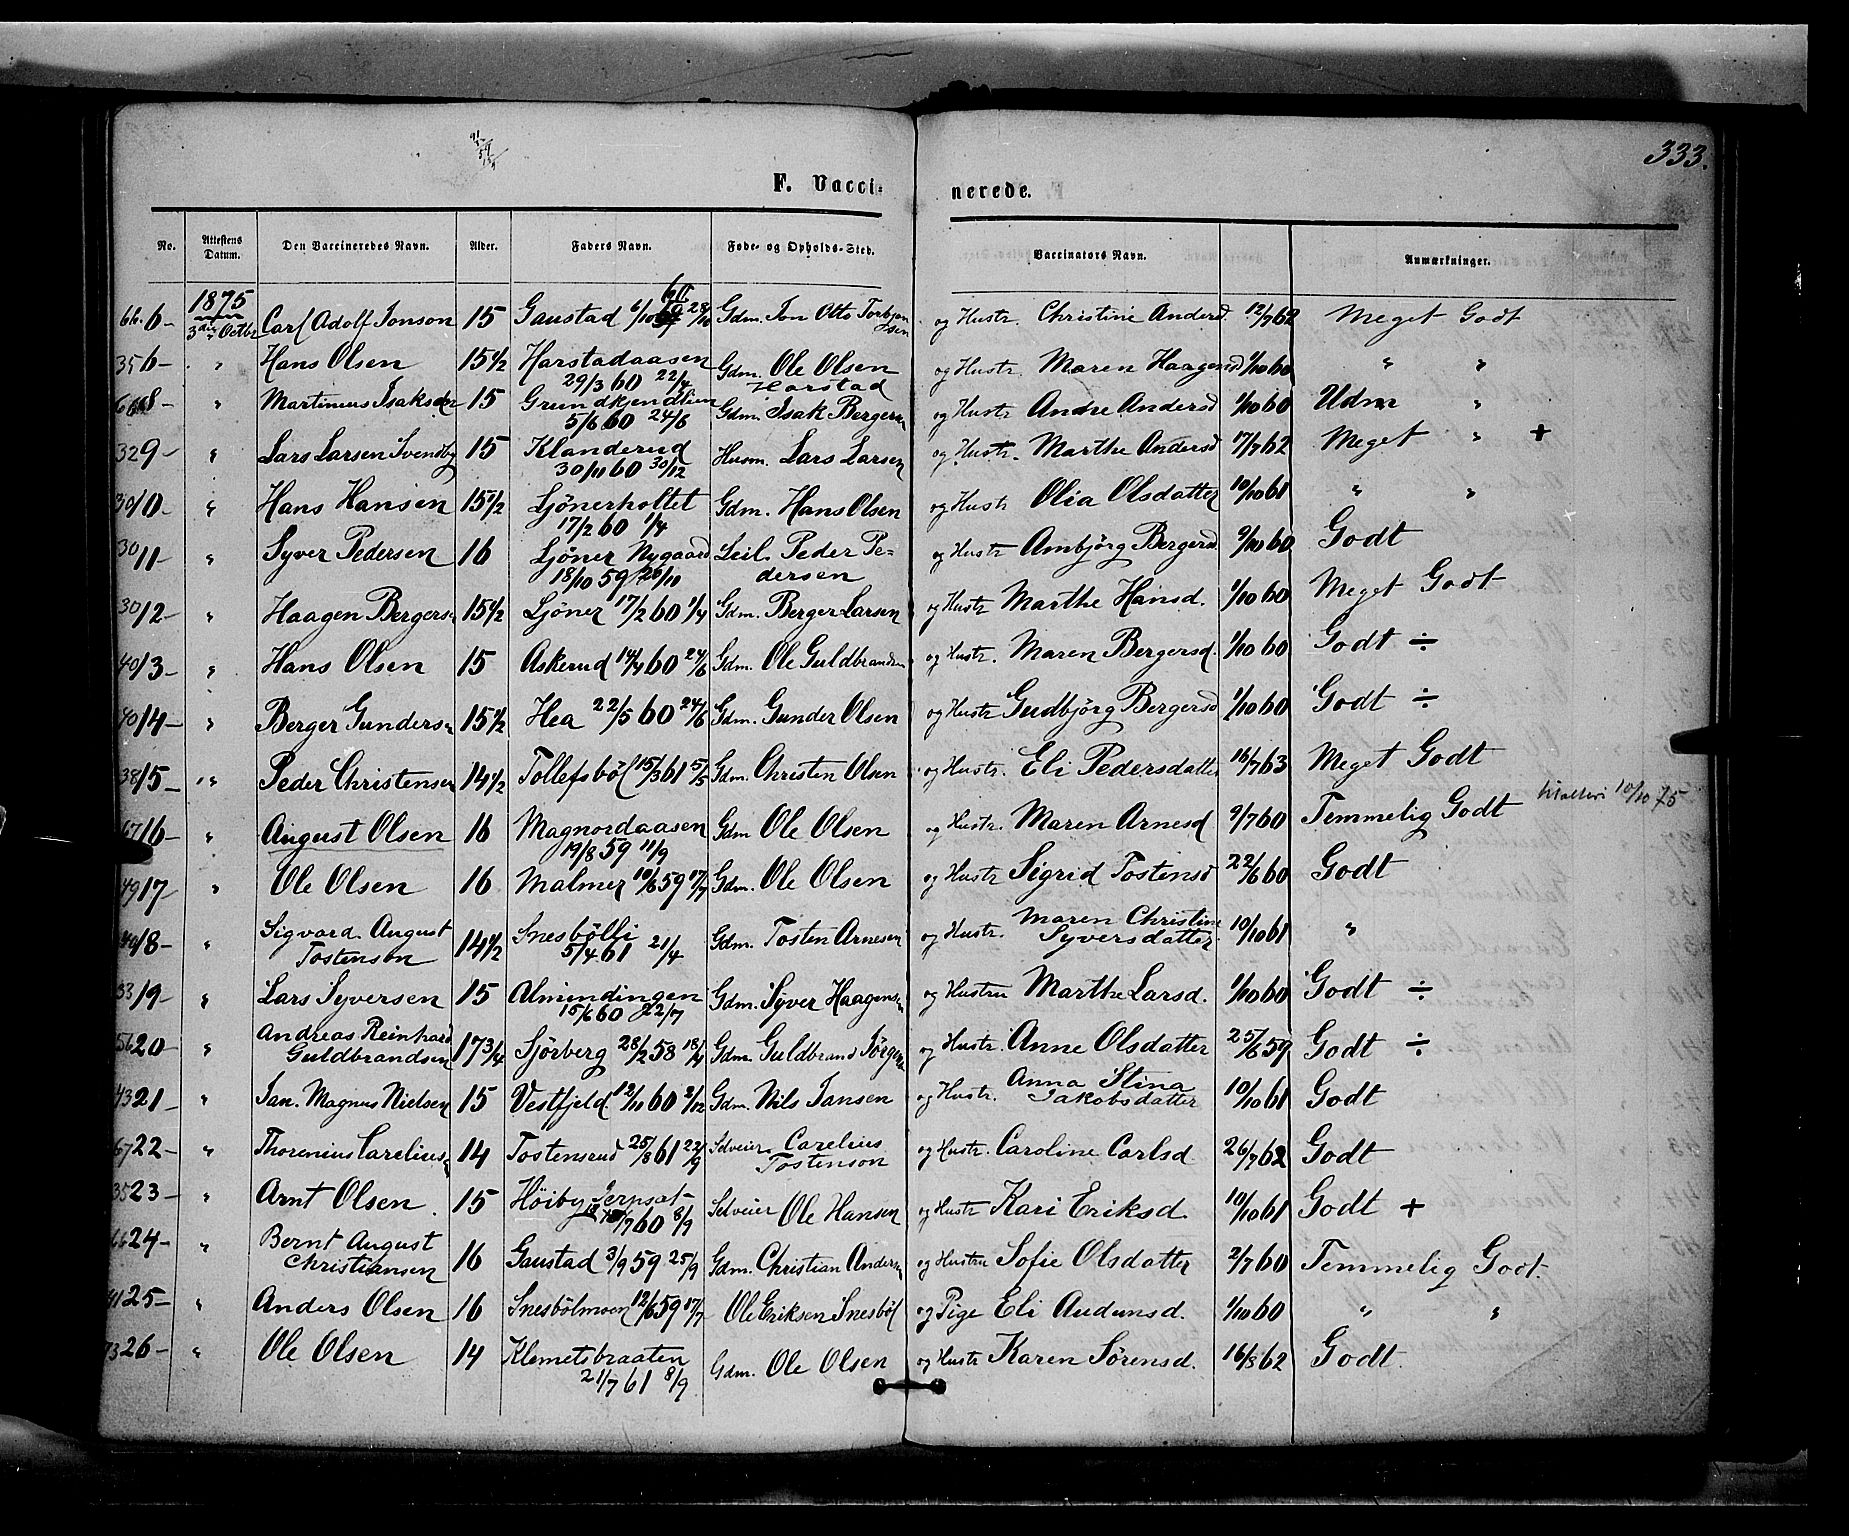 333.
F. Vacci= nerede.
No. Attestens Datum. Den Vaccineredes Navn. Alder. Faders Navn. Føde- og Opholds-Sted. Vaccinators Navn. Anmærkninger.
1875
66. 6- 3die Octbr Carl Adolf Jonson 15 Gaustad 6/10 60 28/10 Gdm. Jon Otto Torbjønsen og Hustr. Christine Andersd. 12/7 62 Meget Godt
35 6- " Hans Olsen 15 1/2 Harstadaasen Gdm. Ole Olsen og Hustr. Maren Haagensd 1/10 60 " "
29/3 60 22/4 Harstad
8- " Martinius Isaksen 15 Grundkjendlien Gdm. Isak Bergersen og Hustr Andre Andersd 1/10 60 Udm "
5/6 60 24/6
32 9- " Lars Larsen Svendby 15 Klanderud Husm. Lars Larsen og Hustr. Marthe Andersd 17/7 62 Meget " +
30/11 60 30/12
30 10- " Hans Hansen 15 1/2 Ljönerholtet Gdm. Hans Olsen og Hustr Olia Olsdatter 10/10 61 " "
17/2 60 1/4
30 11- " Syver Pedersen 16 Ljöner Nygaard Leil. Peder Pe- og Hustr Ambjörg Bergersd. 9/10 60 Godt
18/10 59 20/11 dersen
30 12- " Haagen Bergersen 15 1/2 Ljöner 17/2 60 1/4 Gdm. Berger Larsen og Hustr Marthe Hansd. 1/10 60 Meget Godt
40 13- " Hans Olsen 15 Askerud 14/4 60 24/6 Gdm. Ole Guldbrandsen og Hustr. Maren Bergersd. 1/10 60 Godt ÷
40 14- " Berger Gundersen 15 1/2 Hea 22/5 60 24/6 Gdm. Gunder Olsen og Hustr Gudbjörg Bergersd 1/10 60 Godt ÷
38 15- " Peder Christensen 14 1/2 Tollefsböl 15/3 61 5/5 Gdm. Christen Olsen og Hustr. Eli Pedersdatter 16/7 63 Meget Godt
67 16- " August Olsen 16 Magnordaasen Gdm Ole Olsen og Hustr. Maren Arnesd 9/7 60 Temmelig Godt 10/10 75
19/8 59 11/9
49 17- " Ole Olsen 16 Malmer 10/6 59 17/7 Gdm. Ole Olsen og Hustr Sigrid Tostensd 22/6 60 Godt
40 18- " Sigvard August Tostenson 14 1/2 Snesbölli Gdm. Tosten Arnesen og Hustr. Maren Christine Syversdatter 10/10 61 "
5/4 61 21/4
33 19- " Lars Syversen 15 Almindingen Gdm. Syver Haagensen og Hustru Marthe Larsd. 1/10 60 Godt ÷
15/6 60 22/7
56 20- " Andreas Reinhard Guldbrandsen 17 3/4 Sjörberg 28/2 58 18/4 Gdm. Guldbrand Jörgensen og Hustr. Anne Olsdatter 25/6 59 Godt ÷
43 21- " Jan. Magnus Nielsen 15 Vestfjeld 12/11 60 2/12 Gdm. Nils Jansen og Hustr. Anna Stina Jakobsdatter 10/10 61 Godt
67 22- " Thorenius Careliusen 14 Tostensrud 25/8 61 22/9 Selveier Carelius Tostenson og Hustr. Caroline Carlsd 26/7 62 Godt
35 23- " Arnt Olsen. 15 Höiby Jernsæt- Selveier Ole Hansen og Hustr Kari Eriksd. 10/10 61 Godt +
18/7 60 8/9
66 24- " Bernt August Christiansen 16 Gaustad 3/9 59 25/9 Gdm. Christian Andersen og Hustru Sofie Olsdatter 2/7 60 Temmelig Godt.
41 25- " Anders Olsen 16 Snesbölmoen 12/6 59 17/7 Ole Eriksen Snesböl og Pige Eli Audunsd. 1/10 60 " "
73 26- " Ole Olsen 14 Klemetsbraaten Gdm. Ole Olsen og Hustr Karen Sörensd. 16/8 62 Godt.
21/7 61 8/9